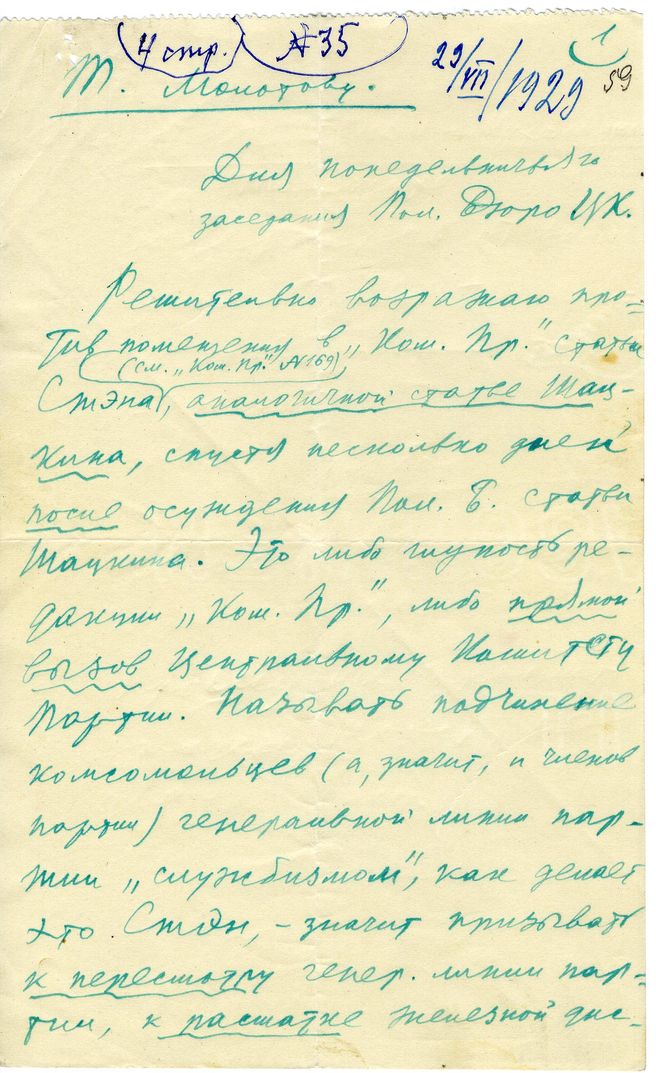 (4 стр.) №35 1
29/VII/1929 59
Т. Молотову.
Для понедельничьяго
заседания Пол. Бюро ЦК.
Решительно возражаю про-
тив помещения в „Ком. Пр.” статьи
(см. „Ком. Пр.” №169)
Стэна, аналогичной статье Шац-
кина, спустя несколько дней
после осуждения Пол. Б. статьи
Шацкина. Это либо глупость ре-
дакции „Ком. Пр.”, либо прямой
вызов Центральному Комитету
Партии. Называть подчинение
комсомольцев (а, значит, и членов
партии) генеральной линии пар-
тии „службизмом”, как делает
это Стэн, – значит призывать
к пересмотру генер. линии пар-
тии, к расшатке железной дис-